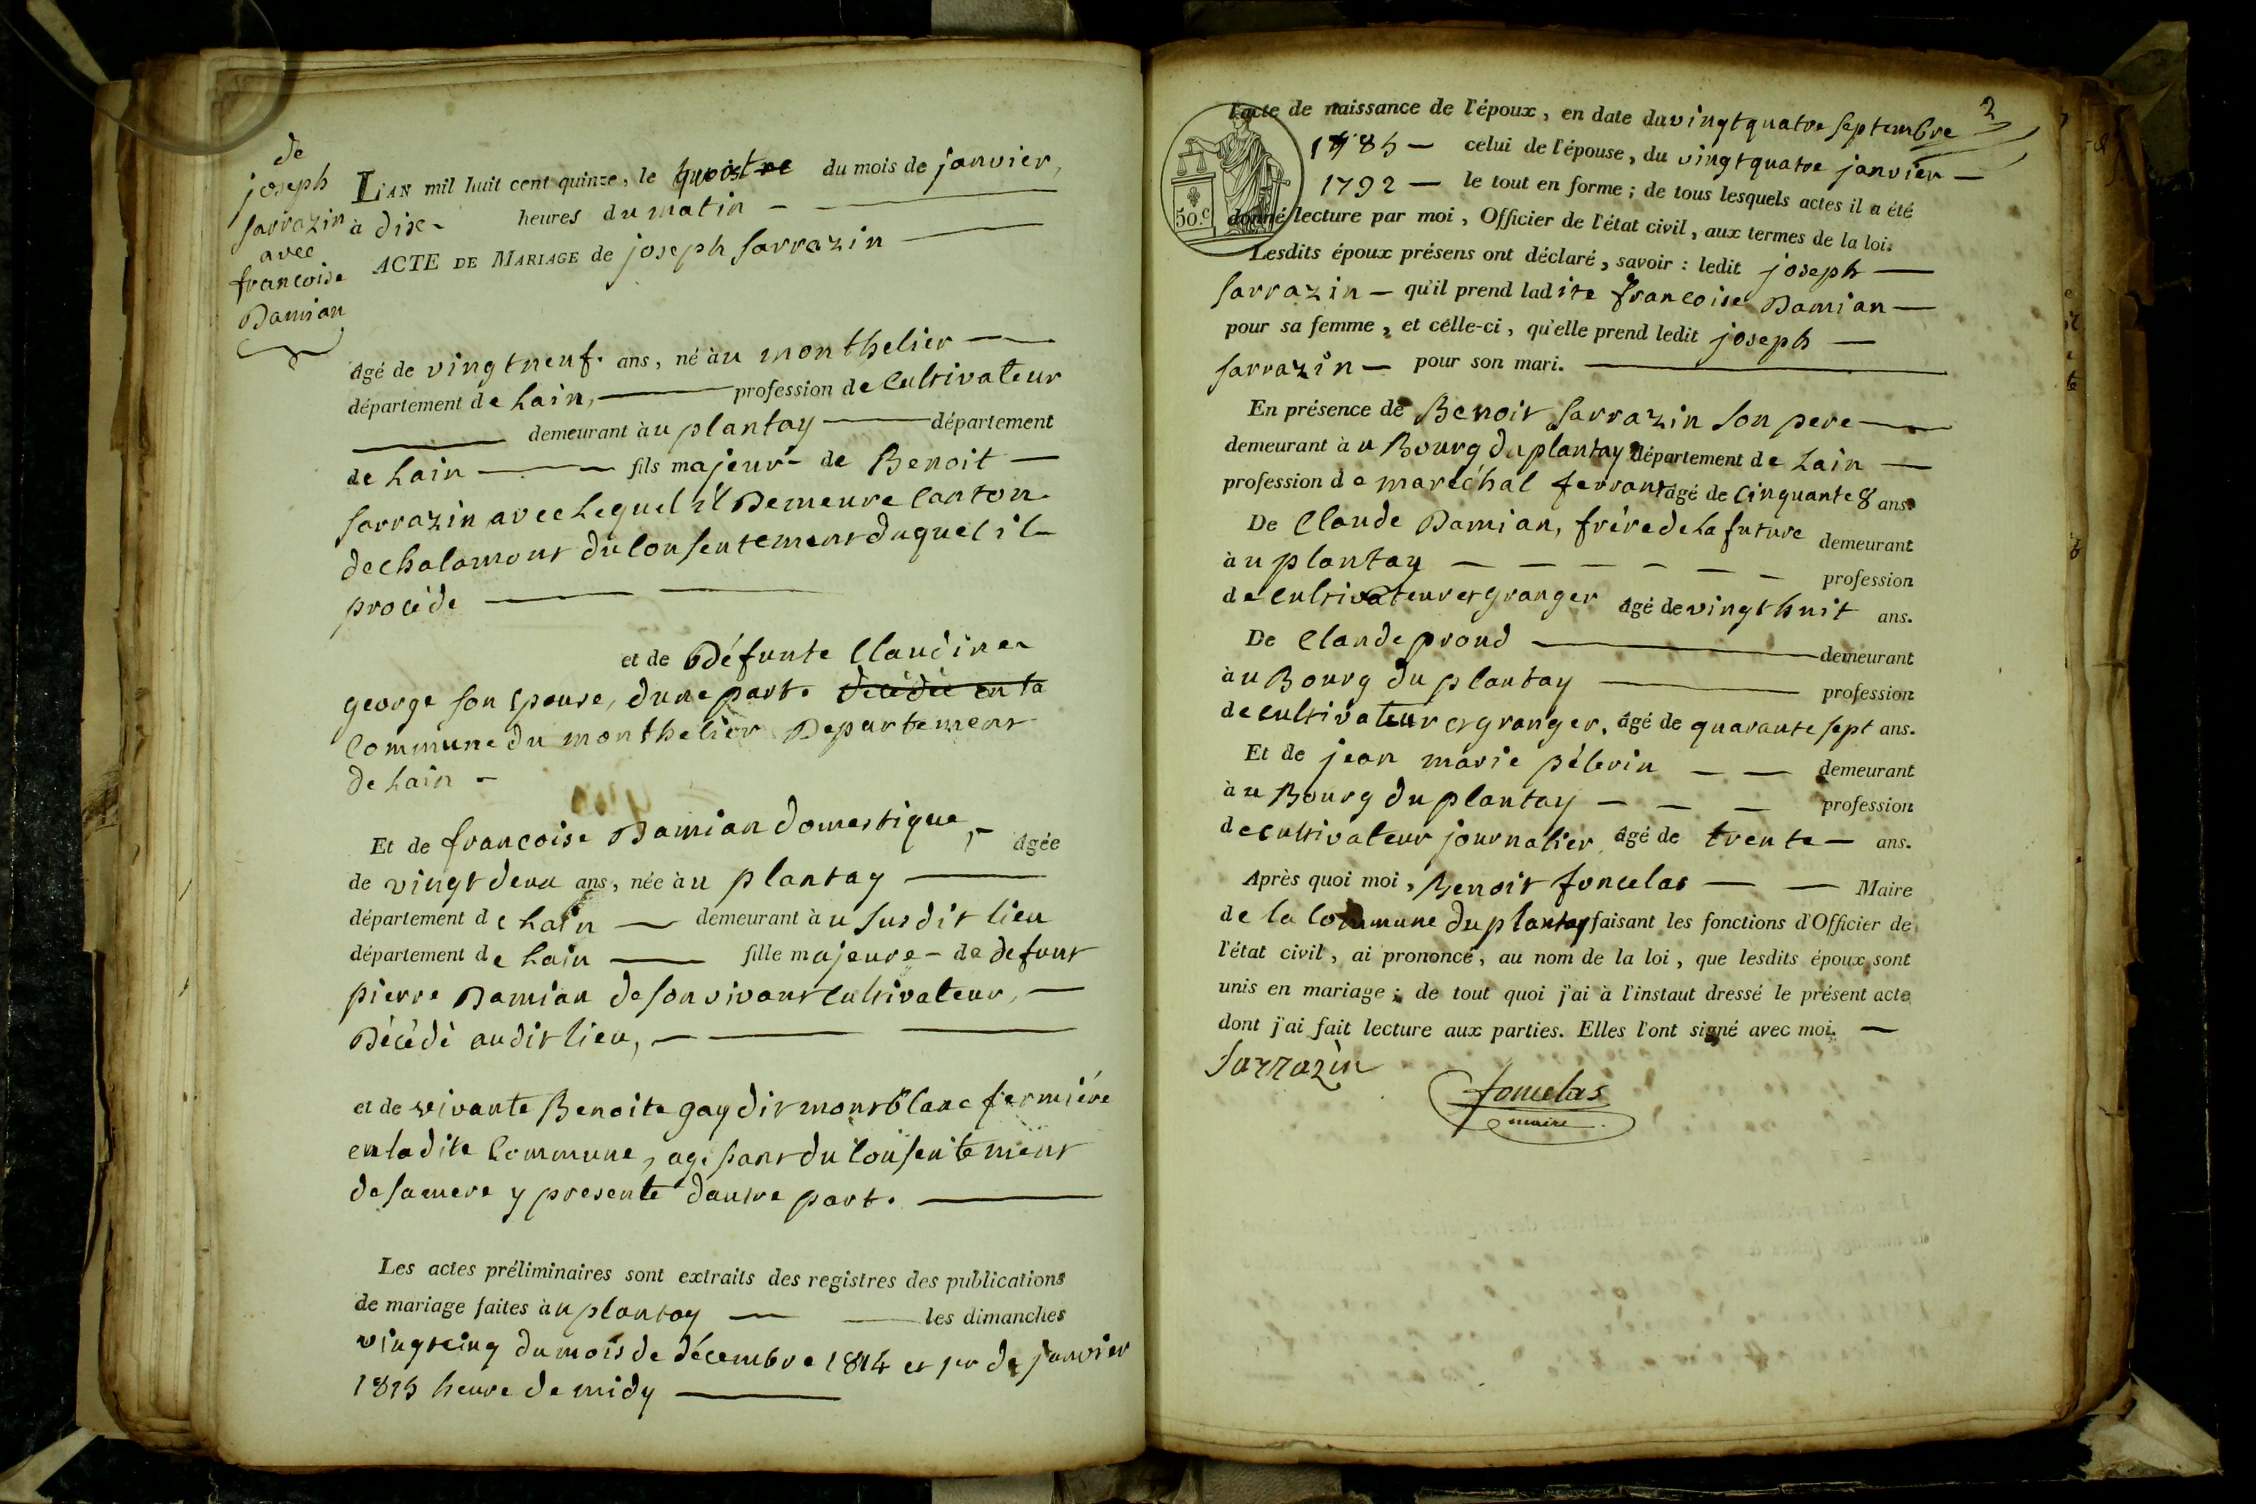 de
joseph
sarrazin
avec
francoise
Damian
L'AN mil huit cent quinze, le quatre du mois de janvier,
à dix - heures du matin -
ACTE DE MARIAGE de joseph sarrazin
âgé de vingt neuf. ans, né àu monthelier
département de Lain, profession de Cultivateur
demeurant àu plantay département
de Lain fils majeur de Benoit
sarrazin avec Lequel il Demeure Canton
dechalamont du Consentement duquel il
procéde
et de Défunte Claudine
george son Epouse, dune part. decédée en la
Commune du monthelier Departement
de Lain -
Et de francoise Damian domestique, âgée
de vingt deux ans, née àu plantay
département de Lain demeurant àu susdit lieu
département de Lain fille majeure - de defunt
pierre Damian de son vivant Cultivateur,
Décédé audit lieu,
et de vivante Benoite gay dit montblanc fermiére
en ladite Commune, agissant du Consentement
de sa mere y presente dautre part.
Les actes préliminaires sont extraits des registres des publications
de mariage faites àu plantay les dimanches
vingt cinq du mois de décembre 1814 et 1er de janvier
1815 heure de midy
2
l'acte de naissance de l'époux, en date du vingt quatre septembre
1785 - celui de l'épouse, du vingt quatre janvier -
1792 - le tout en forme; de tous lesquels actes il a été
50.c
donné lecture par moi, Officier de l'état civil, aux termes de la loi.
Lesdits époux présens ont déclaré, savoir : ledit joseph
sarrazin - qu'il prend ladite francoise Damian
pour sa femme, et celle-ci, qu'elle prend ledit joseph
sarrazin - pour son mari.
En présence de Benoit sarrazin son pere
demeurant àu Bourg du plantay département de Lain
profession de maréchal ferrant âgé de Cinquante 8 ans.
De Claude Damian, frére de La future demeurant
àu plantay profession
de Cultivateur et granger âgé de vingt huit ans.
De Claude proud demeurant
àu Bourg du plantay profession
de cultivateur et granger, âgé de quarante sept ans.
Et de jean marie pélerin demeurant
àu Bourg du plantay profession
de cultivateur journalier âgé de trente - ans.
Après quoi moi, Benoit foncelas Maire
de la Commune du plantay faisant les fonctions d'Officier de
l'état civil, ai prononcé, au nom de la loi, que lesdits époux sont
unis en mariage; de tout quoi j'ai à l'instant dressé le présent acte
dont j'ai fait lecture aux parties. Elles l'ont signé avec moi.
Sarrazin
foncelas
maire